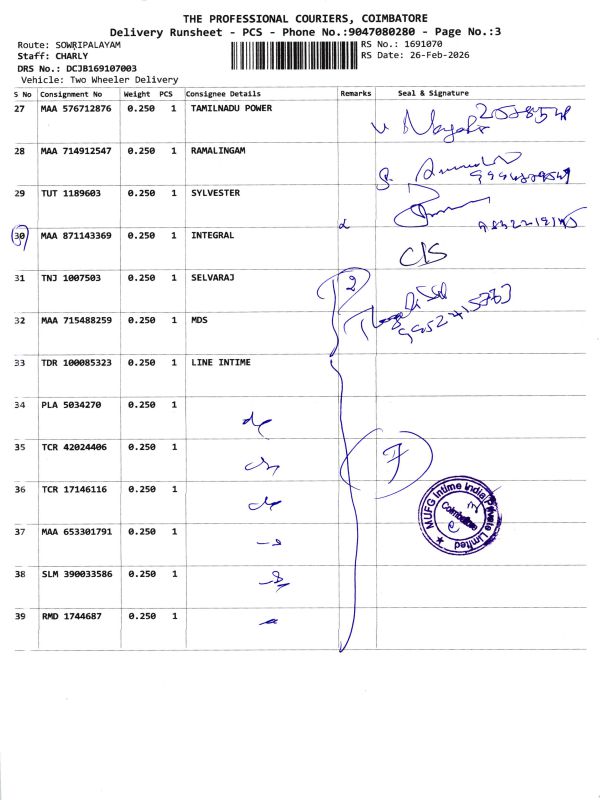 THE PROFESSIONAL COURIERS, COIMBATORE
Delivery Runsheet - PCS - Phone No.:9047080280 - Page No.:3
Route: SOWRIPALAYAM RS No.: 1691070
Staff: CHARLY RS Date: 26-Feb-2026
DRS No.: DCJB169107003
Vehicle: Two Wheeler Delivery
S No Consignment No Weight PCS Consignee Details Remarks Seal & Signature
27 MAA 576712876 0.250 1 TAMILNADU POWER
28 MAA 714912547 0.250 1 RAMALINGAM
29 TUT 1189603 0.250 1 SYLVESTER
30 MAA 871143369 0.250 1 INTEGRAL
31 TNJ 1007503 0.250 1 SELVARAJ 2
32 MAA 715488259 0.250 1 MDS
33 TDR 100085323 0.250 1 LINE INTIME
34 PLA 5034270 0.250 1
35 TCR 42024406 0.250 1 7
36 TCR 17146116 0.250 1
MUFG Intime India Private Limited
Coimbatore
37 MAA 653301791 0.250 1
38 SLM 390033586 0.250 1
39 RMD 1744687 0.250 1